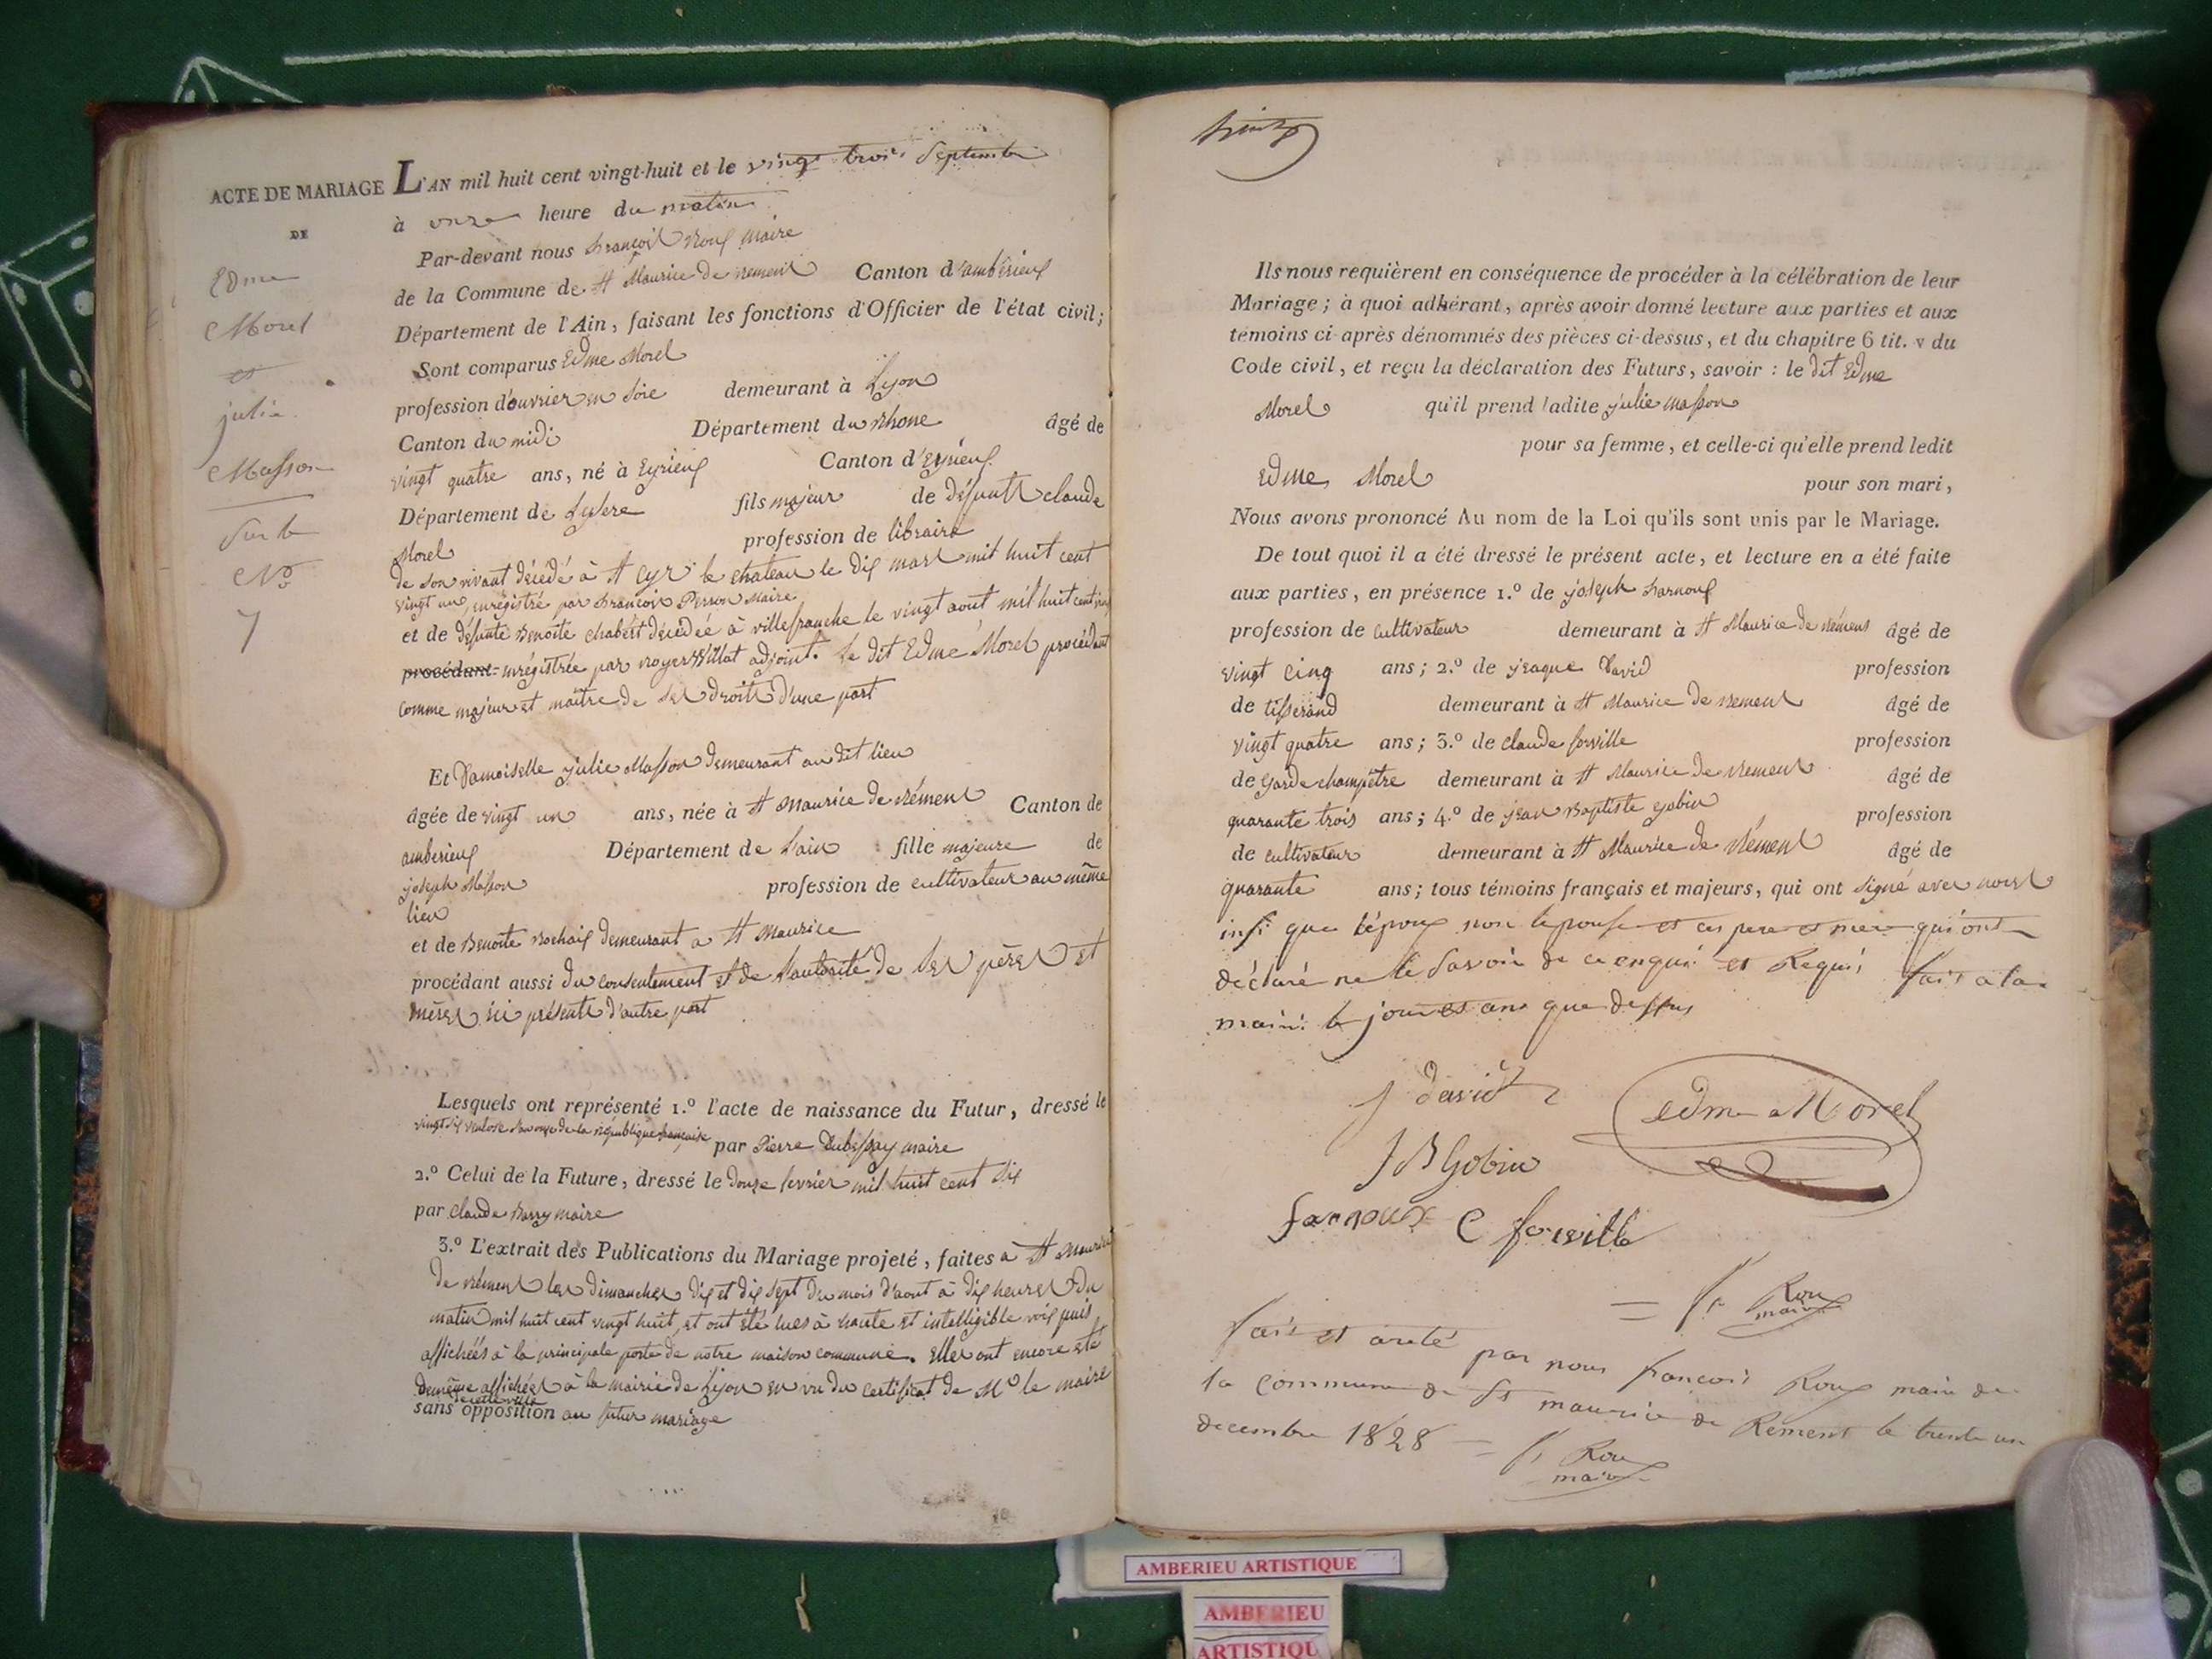 ACTE DE MARIAGE
DE
Edme
Morel
et
julie
Masson
Sur le
No
7
L'AN mil huit cent vingt-huit et le vingt trois Septembre
à onze heure du matin
Par-devant nous françois Roux maire
de la Commune de St Maurice de remens Canton d'amberieux
Département de l'Ain, faisant les fonctions d'Officier de l'état civil;
Sont comparus Edme Morel
profession d'ouvrier en soie demeurant à Lyon
Canton du midi Département du Rhone âgé de
vingt quatre ans, né à Eyrieux Canton d'Eyrieux
Département de Lysere fils majeur de défunts claude
Morel profession de libraire
de son vivant décédé à St Cyr le chateau le dix mars mil huit cent
vingt un, enrégistré par francois Perron Maire
et de défunte Benoite Chabert décédée à villefranche le vingt aout mil huit cent
procédant enrégistrée par adjoint. Le dit Edme Morel procédant
comme majeur et maitre de ses droits d'une part
Et Damoiselle julie Masson demeurant au dit lieu
âgée de vingt un ans, née à St Maurice de rémens Canton de
amberieux Département de Lain fille majeure de
joseph Masson profession de cultivateur au même
lieu
et de Benoite Rochaix demeurant a St Maurice
procédant aussi du consentement et de l'autorité de ses pères et
mères ici présents d'autre part
Lesquels ont représenté 1.º l'acte de naissance du Futur, dressé le
vingt six ventose an onze de la république française par Pierre Dubessay maire
2.º Celui de la Future, dressé le douze fevrier mil huit cent six
par Claude Barry maire
3.º L'extrait des Publications du Mariage projeté, faites à St Maurice
de rémens les dimanches dix et dix sept du mois d'aout à dix heures du
matin mil huit cent vingt huit, et ont été lues à haute et intelligible voix puis
affichées à la principale porte de notre maison commune. Elles ont encore été
demême affichées à la mairie de Lyon en vu du certificat de Mr le maire
de cette ville
sans opposition au futur mariage
Ils nous requièrent en conséquence de procéder à la célébration de leur
Mariage; à quoi adhérant, après avoir donné lecture aux parties et aux
témoins ci-après dénommés des pièces ci-dessus, et du chapitre 6 tit. v du
Code civil, et reçu la déclaration des Futurs, savoir : le dit Edme
Morel qu'il prend ladite julie masson
pour sa femme, et celle-ci qu'elle prend ledit
Edme Morel pour son mari,
Nous avons prononcé Au nom de la Loi qu'ils sont unis par le Mariage.
De tout quoi il a été dressé le présent acte, et lecture en a été faite
aux parties, en présence 1.º de joseph farnoux
profession de cultivateur demeurant à St Maurice de rémens âgé de
vingt cinq ans; 2.º de jeaque David profession
de tisserand demeurant à St Maurice de remens âgé de
vingt quatre ans; 3.º de claude forville profession
de garde champêtre demeurant à St Maurice de remens âgé de
quarante trois ans; 4.º de jean Baptiste gobin profession
de cultivateur demeurant à St Maurice de rémens âgé de
quarante ans; tous témoins français et majeurs, qui ont signé avec nous
insi que l'époux non l'epouse et ces pere et mere qui ont
déclaré ne le savoir de ce enquis et Requis fait a la
mairie le jour et ans que dessus
J david
edme Morel
J B Gobin
farnoux C forville
= fs Roux
maire
fait et areté par nous francois Roux maire de
la commune de St maurice de Remens le trente un
decembre 1828 = fs Roux
maire
AMBERIEU ARTISTIQUE
AMBERIEU
ARTISTIQU